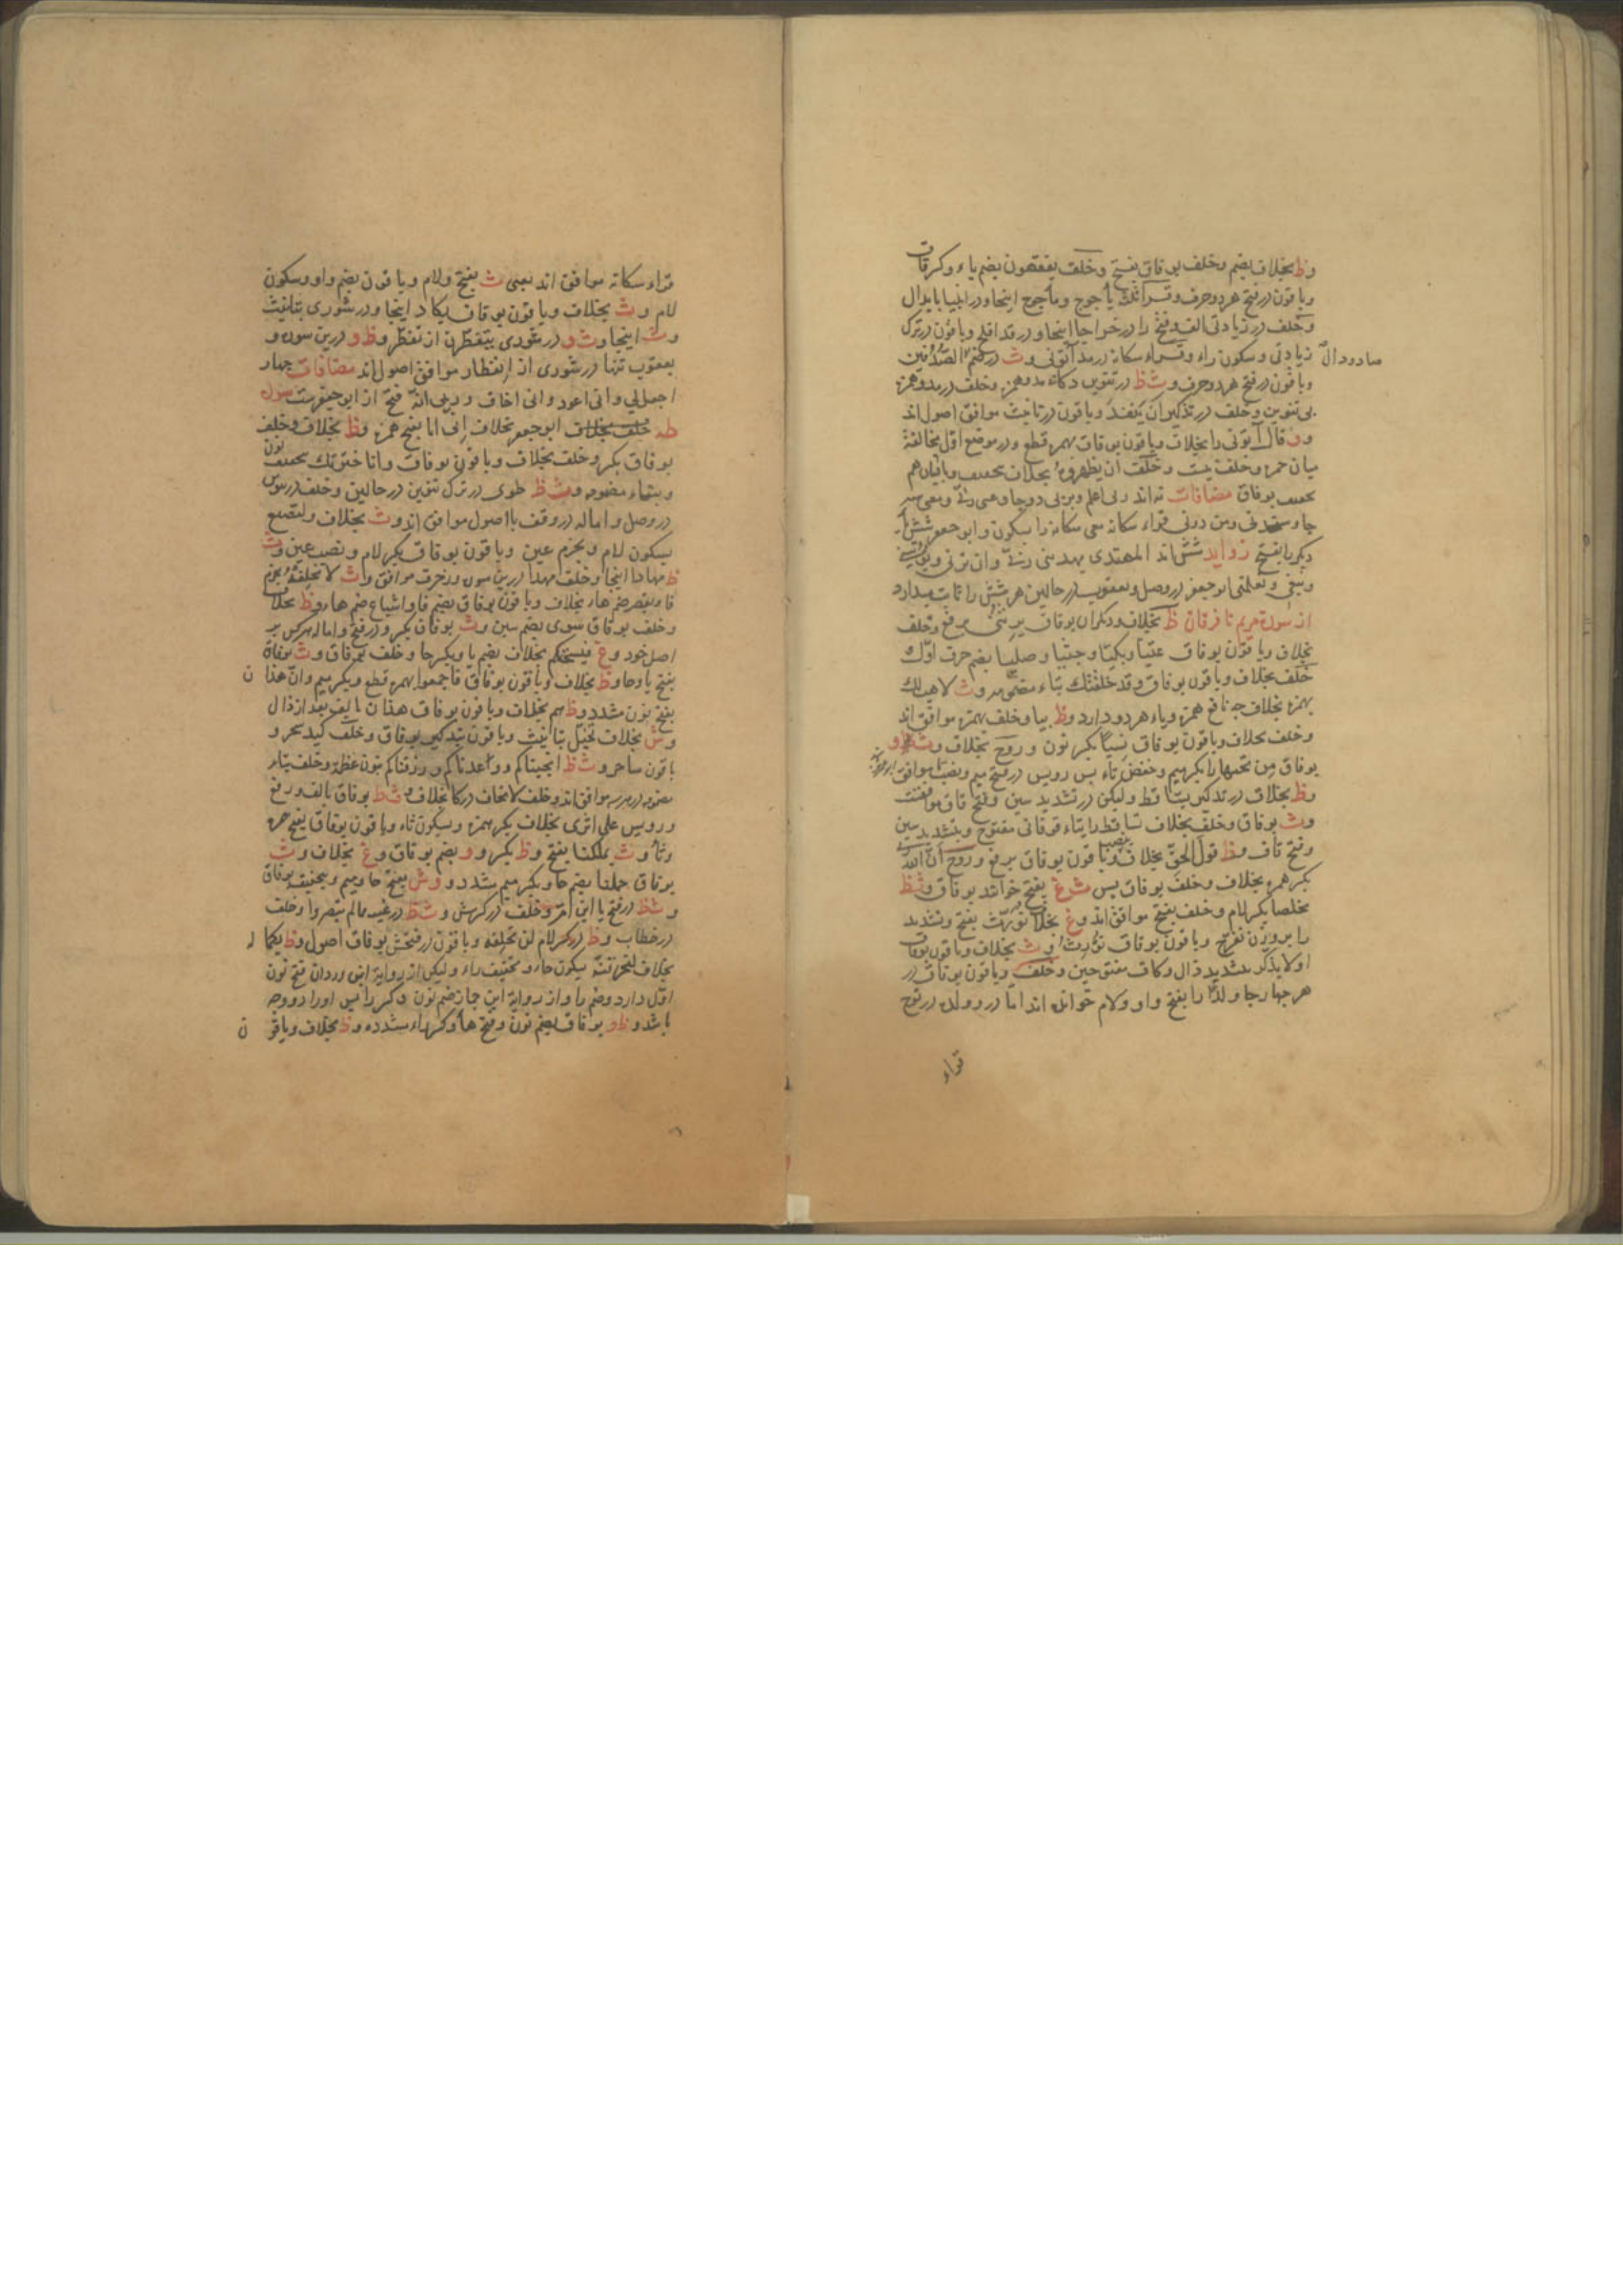 وظ بخلاف بضم وخلف بوفاق بفتح وخلف يفقهون بضم ياء وكسر قاف
وباقون در فتح هر دو حرف و قراء ثلث يأجوج ومأجوج اينجا و در انبيا بابدال
وخلف در زيادتى الف و فتح را در خراجا اينجا و در قد افلح وباقون در ترك
زيادتى وسكون راء و قراء سكانه در مد آتونى و ث در ضم الصدفين
صاد ودال
وباقون در فتح هر دو حرف و ث ظ در تنوين دكاء بد وهمزه وخلف در مد وهمزه
بى تنوين وخلف در تذكير ان ينفد وباقون در تانيث موافق اصول اند
قال آتونى را بخلاف وباقون بوفاق بهمزه قطع و در موضع اول مخالفة
ميان حمزه وخلف نيست وخلف ان يظهروه بخلاف بتخفيف
بوفاق مضافات نه اند ربى اعلم و بربى دو جا وعسى ربى ومعى سه
جا وستجدنى ومن دونى قراء سكانه معى سكانه را بسكون وابو جعفر شش
ديكر را بفتح زوايد شش اند المهتدى يهدينى ربى وان ترنى ويؤتينى
ونبغى وتعلمنى ابو جعفر در وصل و يعقوب در حالين هر شش را ثابت ميدارد
از سورة مريم تا فرقان ظ بخلاف وديكران بوفاق يرثنى برفع وخلف
بخلاف وباقون بوفاق عتيا وبكيا وجثيا وصليا بضم حرف اول
خلف بخلاف وباقون بوفاق وقد خلقتك بتاء مضموم و ث لاهب لك
بهمزه بخلاف چه نافع همزه وياء هر دو دارد و ظ بيا وخلف بهمزه موافق اند
وخلف بخلاف وباقون بوفاق نسيا بكسر نون و روح بخلاف و
بوفاق من تحتها را بكسر ميم وخفض تاء پس رويس در فتح ميم ونصب تا موافق
و ظ بخلاف در تذكير يساقط وليكن در تشديد سين وفتح قاف موافقست
و ث بوفاق وخلف بخلاف تساقط را بتاء فوقانى مفتوح وبتشديد سين
وفتح قاف و ظ قول الحق بخلاف بنصب وباقون بوفاق برفع و روح ان الله
بكسر همزه بخلاف وخلف بوفاق پس ث غ بفتح خوانند بوفاق و ث ظ
مخلصا بكسر لام وخلف بفتح موافق اند و غ بخلاف نورث بفتح وتشديد
را بر وزن نفرح وباقون بوفاق نورث و ث بخلاف وباقون بوفاق
اولا يذكر بتشديد ذال وكاف مفتوحين وخلف وباقون بوفاق در
هر چهار جا ولدا را بفتح واو ولام خوانده اند اما در وولده در نوح
قراء
قراء سكانه موافق اند يعنى ث بفتح ولام وباقون بضم واو وسكون
لام و ث بخلاف وباقون بوفاق يكاد اينجا و در شورى بتانيث
و ث اينجا و ث و در شورى يتفطرن از تفطر و ظ و درين سوره و
يعقوب تنها در شورى از انفطار موافق اصول اند مضافات چهار
اجعل لى وانى اعوذ وانى اخاف و ربى انه فتح از ابو جعفر ست سورة
طه ابو جعفر بخلاف انى انا بفتح همزه و ظ بخلاف وخلف
بوفاق بكسر وخلف بخلاف وباقون بوفاق وانا اخترتك بتخفيف نون
وبتاء مضموم و ث ظ طوى در ترك تنوين در حالين وخلف در تنوين
در وصل واماله در وقف با اصول موافق اند و ث بخلاف ولتصنع
بسكون لام وبجزم عين وباقون بوفاق بكسر لام ونصب عين و ث
ظ مهادا اينجا وخلف مهدا درين سوره و زخرف موافق و ث لا نخلفه بجزم
فا وبقصر ضم هاء بخلاف وباقون بوفاق بضم فا واشباع ضم هاء و ظ بخلاف
وخلف بوفاق سوى بضم سين و ث بوفاق بكسر و در فتح واماله هر كس بر
اصل خود و غ فيسحتكم بخلاف بضم يا وبكسر حا وخلف بوفاق و ث بوفاق
بفتح يا وحا و ظ بخلاف وباقون بوفاق فاجمعوا بهمزه قطع وبكسر ميم وان هذان
بفتح نون مشدد و ظ بخلاف وباقون بوفاق هذان بالف بعد از ذال
و ش بخلاف تخيل بتانيث وباقون بتذكير بوفاق وخلف كيد سحر و
باقون ساحر و ث ظ انجيناكم وواعدناكم ورزقناكم بنون عظمة وخلف بتاء
موافق اند وخلف لا تخاف را بخلاف و ث ظ بوفاق بالف ورفع
و رويس على اثرى بخلاف بكسر همزه وبسكون ثاء وباقون بوفاق بفتح همزه
وثا و ث بملكنا بفتح و ظ بكسر و و بضم بوفاق و غ بخلاف و ث
بوفاق حملنا بضم حا وبكسر ميم مشدد و و ش بفتح حا وميم وبتخفيف بوفاق
و ث ظ در فتح يا ابن ام وخلف در كسرش و ث ظ در غيبه بما لم يبصروا وخلف
در خطاب و ظ در كسر لام لن تخلفه وباقون در فتحش بوفاق اصول و ظ بكما له
بخلاف لنحرقنه بسكون حاء وتخفيف راء وليكن از رواية ابن وردان فتح نون
اول دارد وضم را واز رواية ابن جماز ضم نون وكسر را پس او را دو وجه
باشد و ظ و بوفاق بضم نون وفتح ها وكسر راء مشدده و ظ بخلاف وباقون